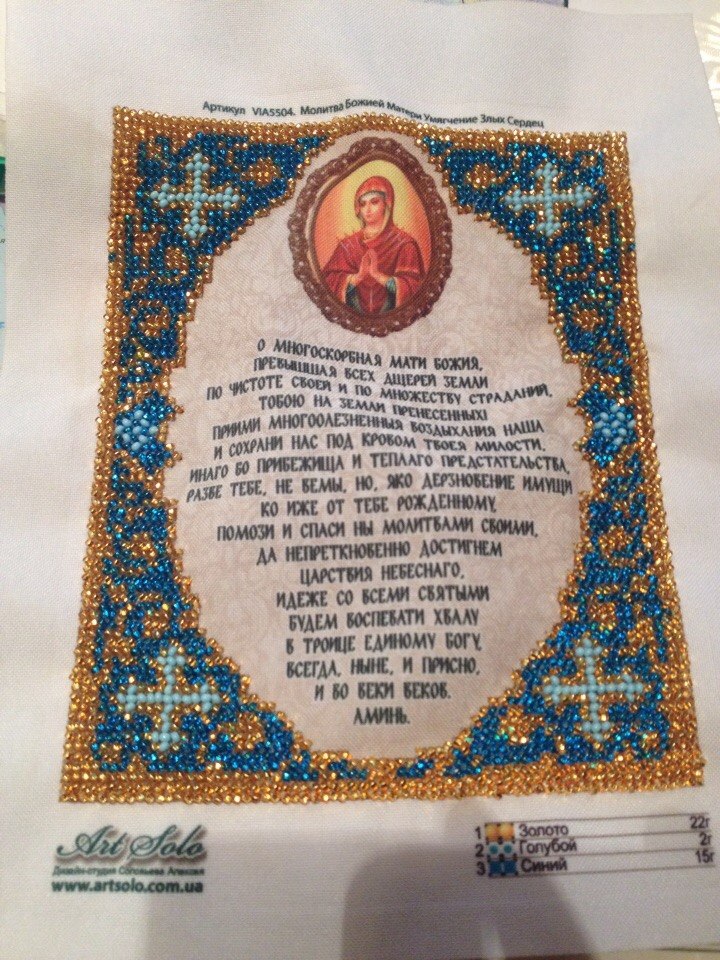 Артикул VIA5504. Молитва Божией Матери Умягчение Злых Сердец
О МНОГОСКОРБНАЯ МАТИ БОЖИЯ,
ПРЕВЫШШАЯ ВСЕХ ДЩЕРЕЙ ЗЕМЛИ
ПО ЧИСТОТЕ СВОЕЙ И ПО МНОЖЕСТВУ СТРАДАНИЙ,
ТОБОЮ НА ЗЕМЛИ ПРЕНЕСЕННЫХ!
ПРИИМИ МНОГООЛЕЗНЕННЫЯ ВОЗДЫХАНИЯ НАША
И СОХРАНИ НАС ПОД КРОВОМ ТВОЕЯ МИЛОСТИ.
ИНАГО БО ПРИБЕЖИЩА И ТЕПЛАГО ПРЕДСТАТЕЛЬСТВА,
РАЗВЕ ТЕБЕ, НЕ ВЕМЫ, НО, ЯКО ДЕРЗНОВЕНИЕ ИМУЩИ
КО ИЖЕ ОТ ТЕБЕ РОЖДЕННОМУ,
ПОМОЗИ И СПАСИ НЫ МОЛИТВАМИ СВОИМИ,
ДА НЕПРЕТКНОВЕННО ДОСТИГНЕМ
ЦАРСТВИЯ НЕБЕСНАГО,
ИДЕЖЕ СО ВСЕМИ СВЯТЫМИ
БУДЕМ ВОСПЕВАТИ ХВАЛУ
В ТРОИЦЕ ЕДИНОМУ БОГУ,
ВСЕГДА, НЫНЕ, И ПРИСНО,
И ВО ВЕКИ ВЕКОВ.
АМИНЬ.
Art Solo
Дизайн-студия Соловьева Алексея
www.artsolo.com.ua
1 Золото 22г
2 Голубой 2г
3 Синий 15г